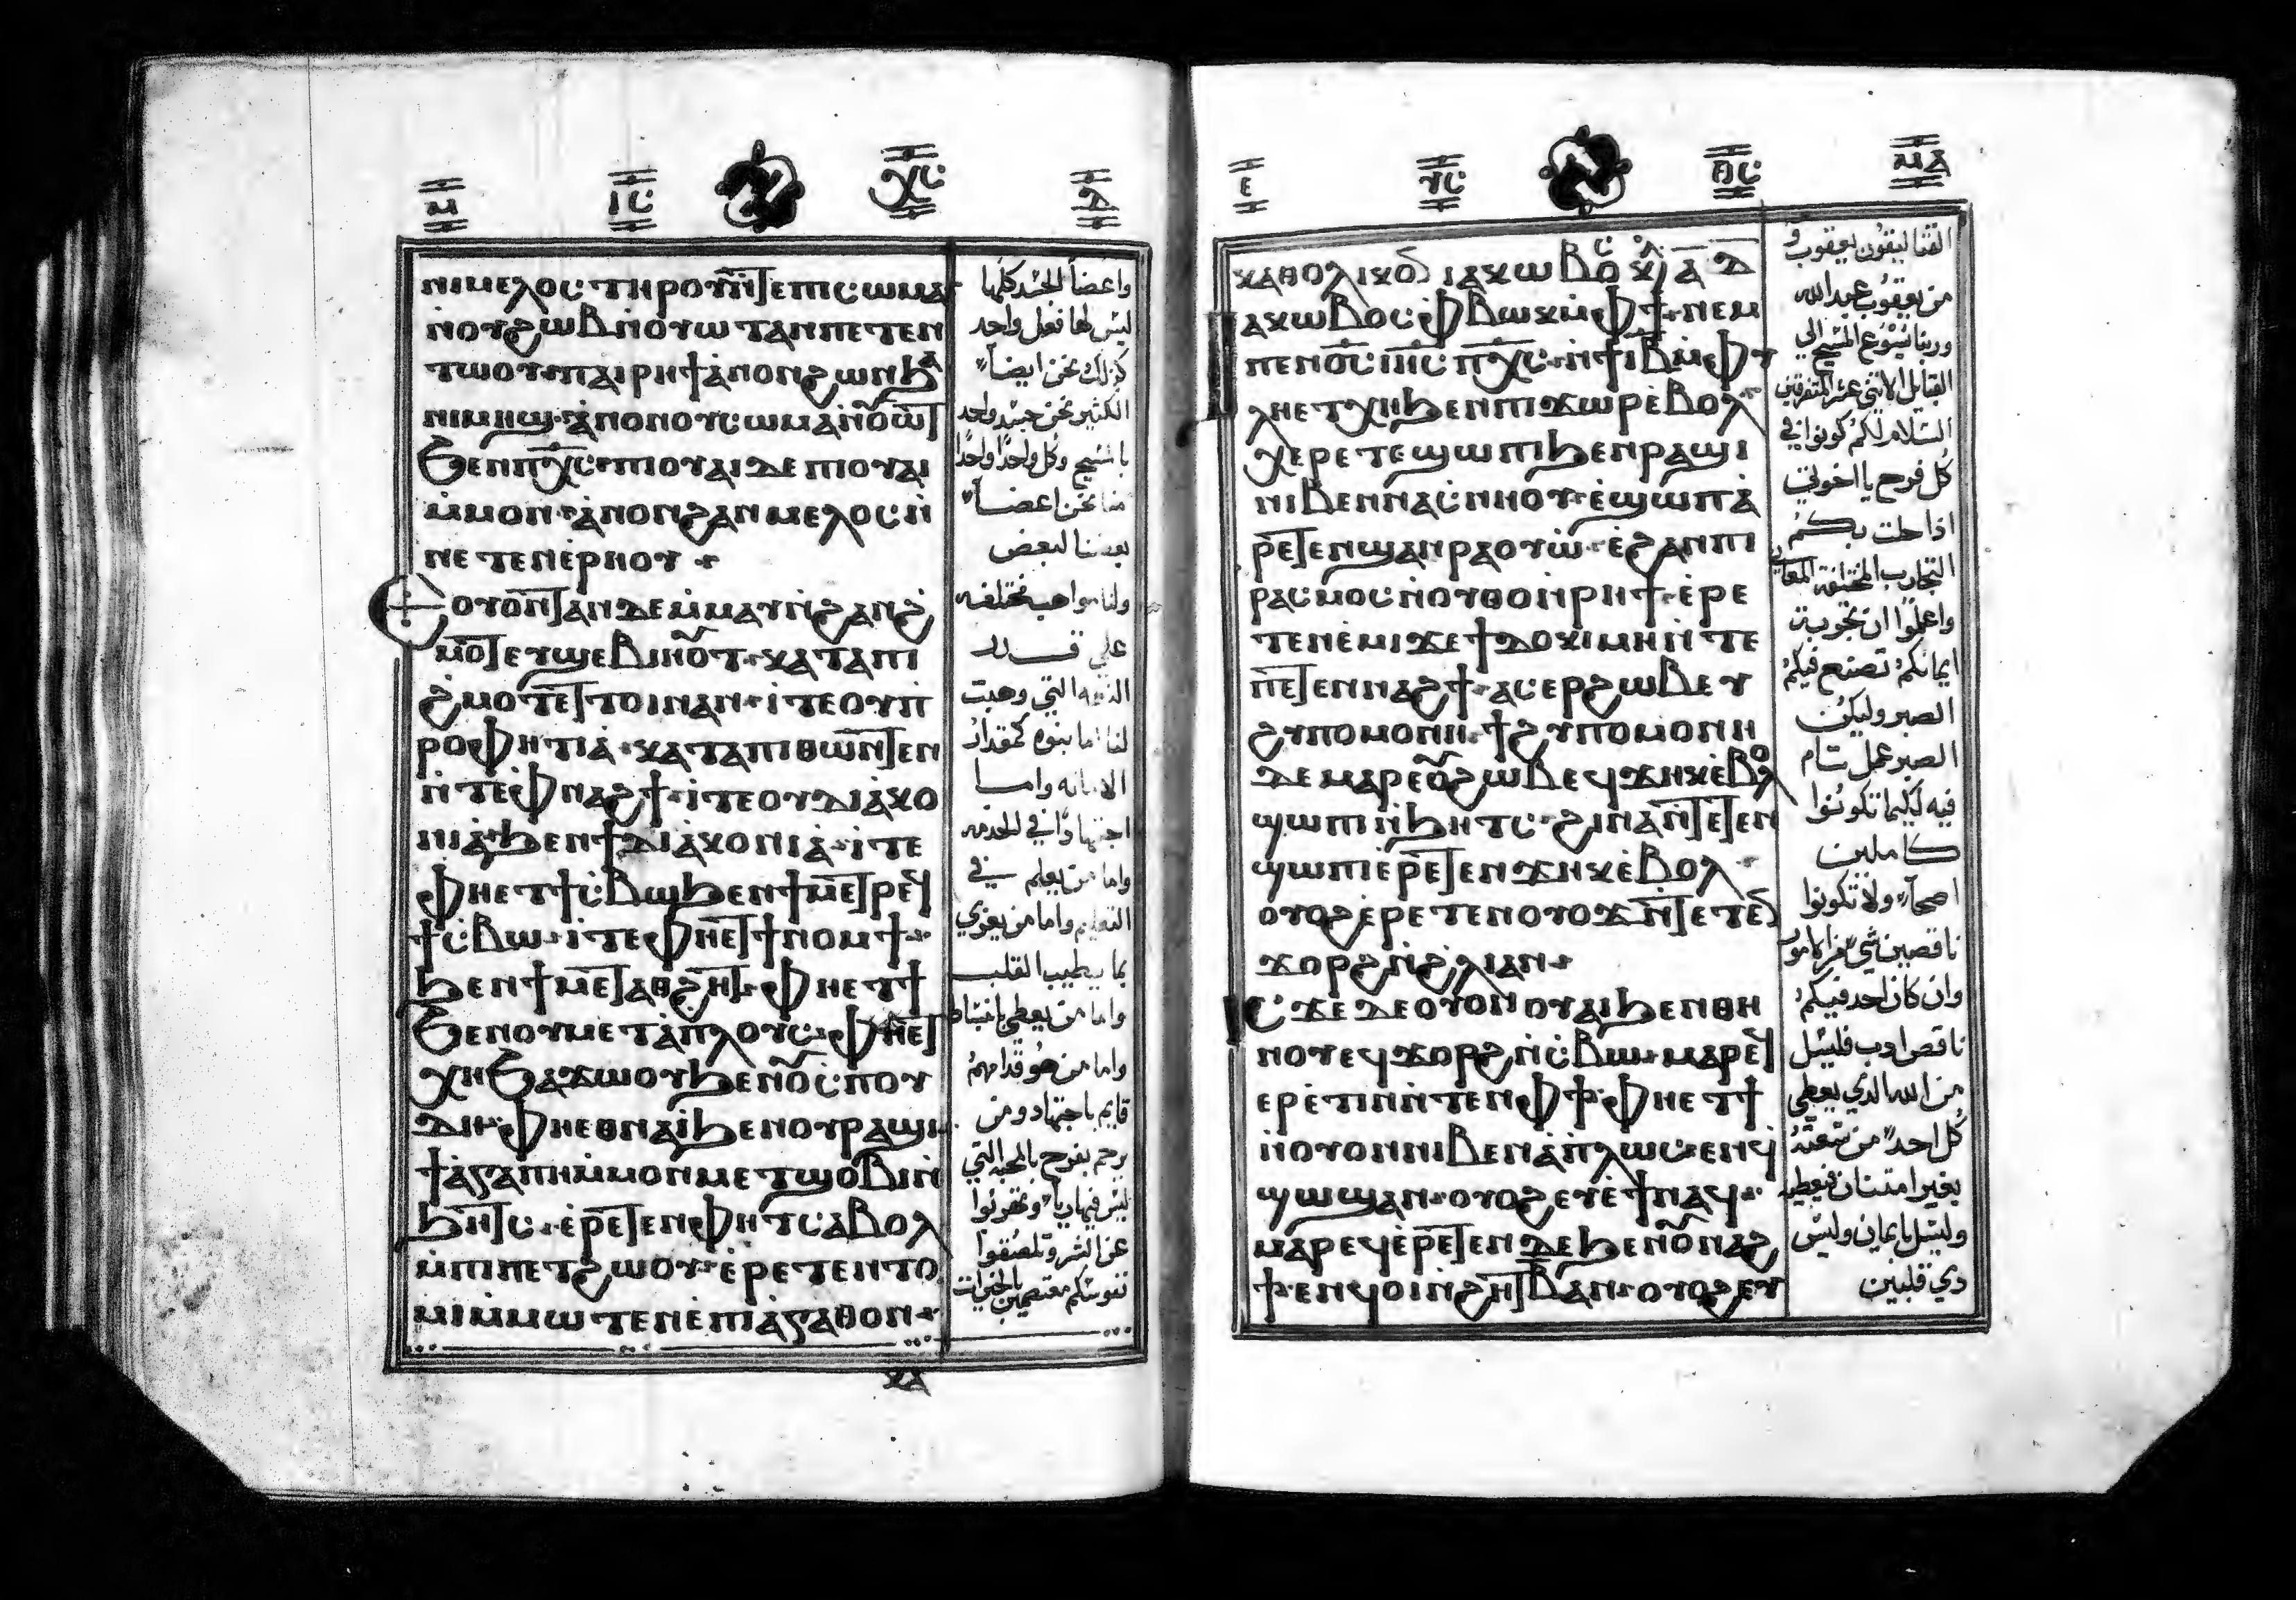 ⲙ ⲓⲥ ⲭⲥ ⲇ
ⲛⲓⲙⲉⲗⲟⲥ ⲧⲏⲣⲟⲩ ⲛⲧⲉⲡⲓⲥⲱⲙⲁ
ⲛⲟⲩϩⲱⲃ ⲛⲟⲩⲱⲧ ⲁⲛ ⲡⲉⲧⲉⲛ
ⲧⲱⲟⲩ ⲡⲁⲓⲣⲏϯ ⲁⲛⲟⲛ ϩⲱⲛ ϧⲁ
ⲛⲓⲙⲏϣ ⲁⲛⲟⲛ ⲟⲩⲥⲱⲙⲁ ⲛⲟⲩⲱⲧ
ϧⲉⲛ ⲡⲭⲥ ⲡⲓⲟⲩⲁⲓ ⲇⲉ ⲡⲓⲟⲩⲁⲓ
ⲙⲙⲟⲛ ⲁⲛⲟⲛ ϩⲁⲛⲙⲉⲗⲟⲥ ⲛ
ⲛⲉⲧⲉⲛⲉⲣⲏⲟⲩ
ⲉⲟⲩⲟⲛⲧⲁⲛ ⲇⲉ ⲙⲙⲁⲩ ⲛϩⲁⲛϩ
ⲙⲟⲧ ⲉⲩϣⲉⲃⲓⲏⲟⲩⲧ ⲕⲁⲧⲁ ⲡⲓ
ϩⲙⲟⲧ ⲉⲧⲧⲟⲓ ⲛⲁⲛ ⲓⲧⲉ ⲟⲩⲡ
ⲣⲟⲫⲏⲧⲓⲁ ⲕⲁⲧⲁ ⲡⲓⲑⲱⲛⲧⲉⲛ
ⲛⲧⲉ ⲫⲛⲁϩϯ ⲓⲧⲉ ⲟⲩⲇⲓⲁⲕⲟ
ⲛⲓⲁ ϧⲉⲛ ϯⲇⲓⲁⲕⲟⲛⲓⲁ ⲓⲧⲉ
ⲫⲏ ⲉⲧϯⲥⲃⲱ ϧⲉⲛ ϯⲙⲉⲧⲣⲉϥ
ϯⲥⲃⲱ ⲓⲧⲉ ⲫⲏ ⲉⲧϯⲛⲟⲙϯ
ϧⲉⲛ ϯⲙⲉⲧⲁⲑϩⲏⲧ ⲫⲏ ⲉⲧϯ
ϧⲉⲛ ⲟⲩⲙⲉⲧⲁⲡⲗⲟⲩⲥ ⲫⲏ ⲉⲧ
ⲭⲏ ϧⲁϫⲱⲟⲩ ϧⲉⲛ ⲟⲩⲥⲡⲟⲩ
ⲇⲏ ⲫⲏ ⲉⲑⲛⲁⲓ ϧⲉⲛ ⲟⲩⲣⲁϣⲓ
ϯⲁⲅⲁⲡⲏ ⲙⲙⲟⲛ ⲙⲉⲧϣⲟⲃⲓ ⲛ
ϧⲏⲧⲥ ⲉⲣⲉⲧⲉⲛⲫⲏⲧ ⲥⲁⲃⲟⲗ
ⲙⲡⲓⲡⲉⲧϩⲱⲟⲩ ⲉⲣⲉⲧⲉⲛⲧⲟ
ⲙⲓ ⲙⲙⲱⲧⲉⲛ ⲉⲡⲓⲁⲅⲁⲑⲟⲛ
ⲕⲁ
واعضا الجسد كلها
ليس لها فعل واحد
كذلك نحن ايضا
الكثير نحن جسد واحد
بالمسيح وكل واحدا واحدا
منا نحن اعضا
بعضنا لبعض
ولنا مواهب مختلفه
علي قدر
النعمه التي وهبت
لنا اما بنوه كمقدار
الامانه واما
اجتهادا في الخدمه
واما من يعلم في
التعليم واما من يعزي
بما يطيب القلب
واما من يعطي بانبساط
واما من هو قدامهم
قايم باجتهاد ومن
يرحم بفرح بالمحبه التي
ليس فيها ريا وتفرونوا
عن الشر وتلصقوا
نفوسكم معتصمين بالخيرات
ⲉ ⲩⲥ ⲑⲥ ⲙⲁ
ⲕⲁⲑⲟⲗⲓⲕⲟⲛ ⲓⲁⲕⲱⲃⲟⲥ ⲕⲉ ⲁ ⲇ
ⲓⲁⲕⲱⲃⲟⲥ ⲫⲃⲱⲕ ⲙⲫϯ ⲛⲉⲙ
ⲡⲉⲛⲟⲥ ⲓⲏⲥ ⲡⲭⲥ ⲛϯⲓⲃ ⲙⲫⲩ
ⲗⲏ ⲉⲧⲭⲏ ϧⲉⲛ ⲡⲓϫⲱⲣ ⲉⲃⲟⲗ
ⲭⲉⲣⲉⲧⲉ ϣⲱⲡⲓ ϧⲉⲛ ⲣⲁϣⲓ
ⲛⲓⲃⲉⲛ ⲛⲁⲥⲛⲏⲟⲩ ⲉϣⲱⲡ ⲁ
ⲣⲉⲧⲉⲛϣⲁⲛⲣⲁⲟⲩⲱ ⲉϩⲁⲛⲡⲓ
ⲣⲁⲥⲙⲟⲥ ⲛⲟⲩⲑⲟ ⲛⲣⲏϯ ⲉⲣⲉ
ⲧⲉⲛⲉⲙⲓ ϫⲉ ϯⲇⲟⲕⲓⲙⲏ ⲛⲧⲉ
ⲡⲉⲧⲉⲛⲛⲁϩϯ ⲁⲥⲉⲣϩⲱⲃ ⲉⲩ
ϩⲩⲡⲟⲙⲟⲛⲏ ϯϩⲩⲡⲟⲙⲟⲛⲏ
ⲇⲉ ⲙⲁⲣⲉ ⲟⲩϩⲱⲃ ⲉϥϫⲏⲕ ⲉⲃⲟⲗ
ϣⲱⲡⲓ ⲛϧⲏⲧⲥ ϩⲓⲛⲁ ⲛⲧⲉⲧⲉⲛ
ϣⲱⲡⲓ ⲉⲣⲉⲧⲉⲛϫⲏⲕ ⲉⲃⲟⲗ
ⲟⲩⲟϩ ⲉⲣⲉⲧⲉⲛⲟⲩⲟϫ ⲛⲧⲉⲧⲉⲛ
ϫⲟⲣϩ ⲛϩⲗⲓ ⲁⲛ
ⲓⲥϫⲉ ⲇⲉ ⲟⲩⲟⲛ ⲟⲩⲁⲓ ϧⲉⲛ ⲑⲏ
ⲛⲟⲩ ⲉϥϫⲟⲣϩ ⲛⲥⲃⲱ ⲙⲁⲣⲉϥ
ⲉⲣⲉⲧⲓⲛ ⲛⲧⲉⲛ ⲫϯ ⲫⲏ ⲉⲧϯ
ⲛⲟⲩⲟⲛ ⲛⲓⲃⲉⲛ ⲁⲡⲗⲱⲥ ⲉⲛϥ
ϣⲱϣ ⲁⲛ ⲟⲩⲟϩ ⲉⲩⲉϯ ⲛⲁϥ
ⲙⲁⲣⲉϥⲉⲣⲉⲧⲓⲛ ⲇⲉ ϧⲉⲛ ⲟⲩⲛⲁϩ
ϯ ⲉⲛϥⲟⲓ ⲛϩⲏⲧ ⲃ ⲁⲛ ⲟⲩⲟϩ ⲉⲩ
القتاليقون يعقوب و
من يعقوب عبد الله
وربنا يسوع المسيح الي
القبايل الاثني عشر المتفرقين
السلام لكم كونوا في
كل فرح يا اخوتي
اذا حلت بكم
التجارب المختلفه المعاني
واعلموا ان تجربة
ايمانكم تصنع فيكم
الصبر وليكن
الصبر عمل تام
فيه لكيما تكونوا
كاملين
اصحا ولا تكونوا
ناقصين شي من الامور
وان كان احد فيكم
ناقص ادب فليسل
من الله الذي يعطي
كل احد من سعته
بغير امتنان فيعطيه
وليسل بايمان وليس
ذي قلبين